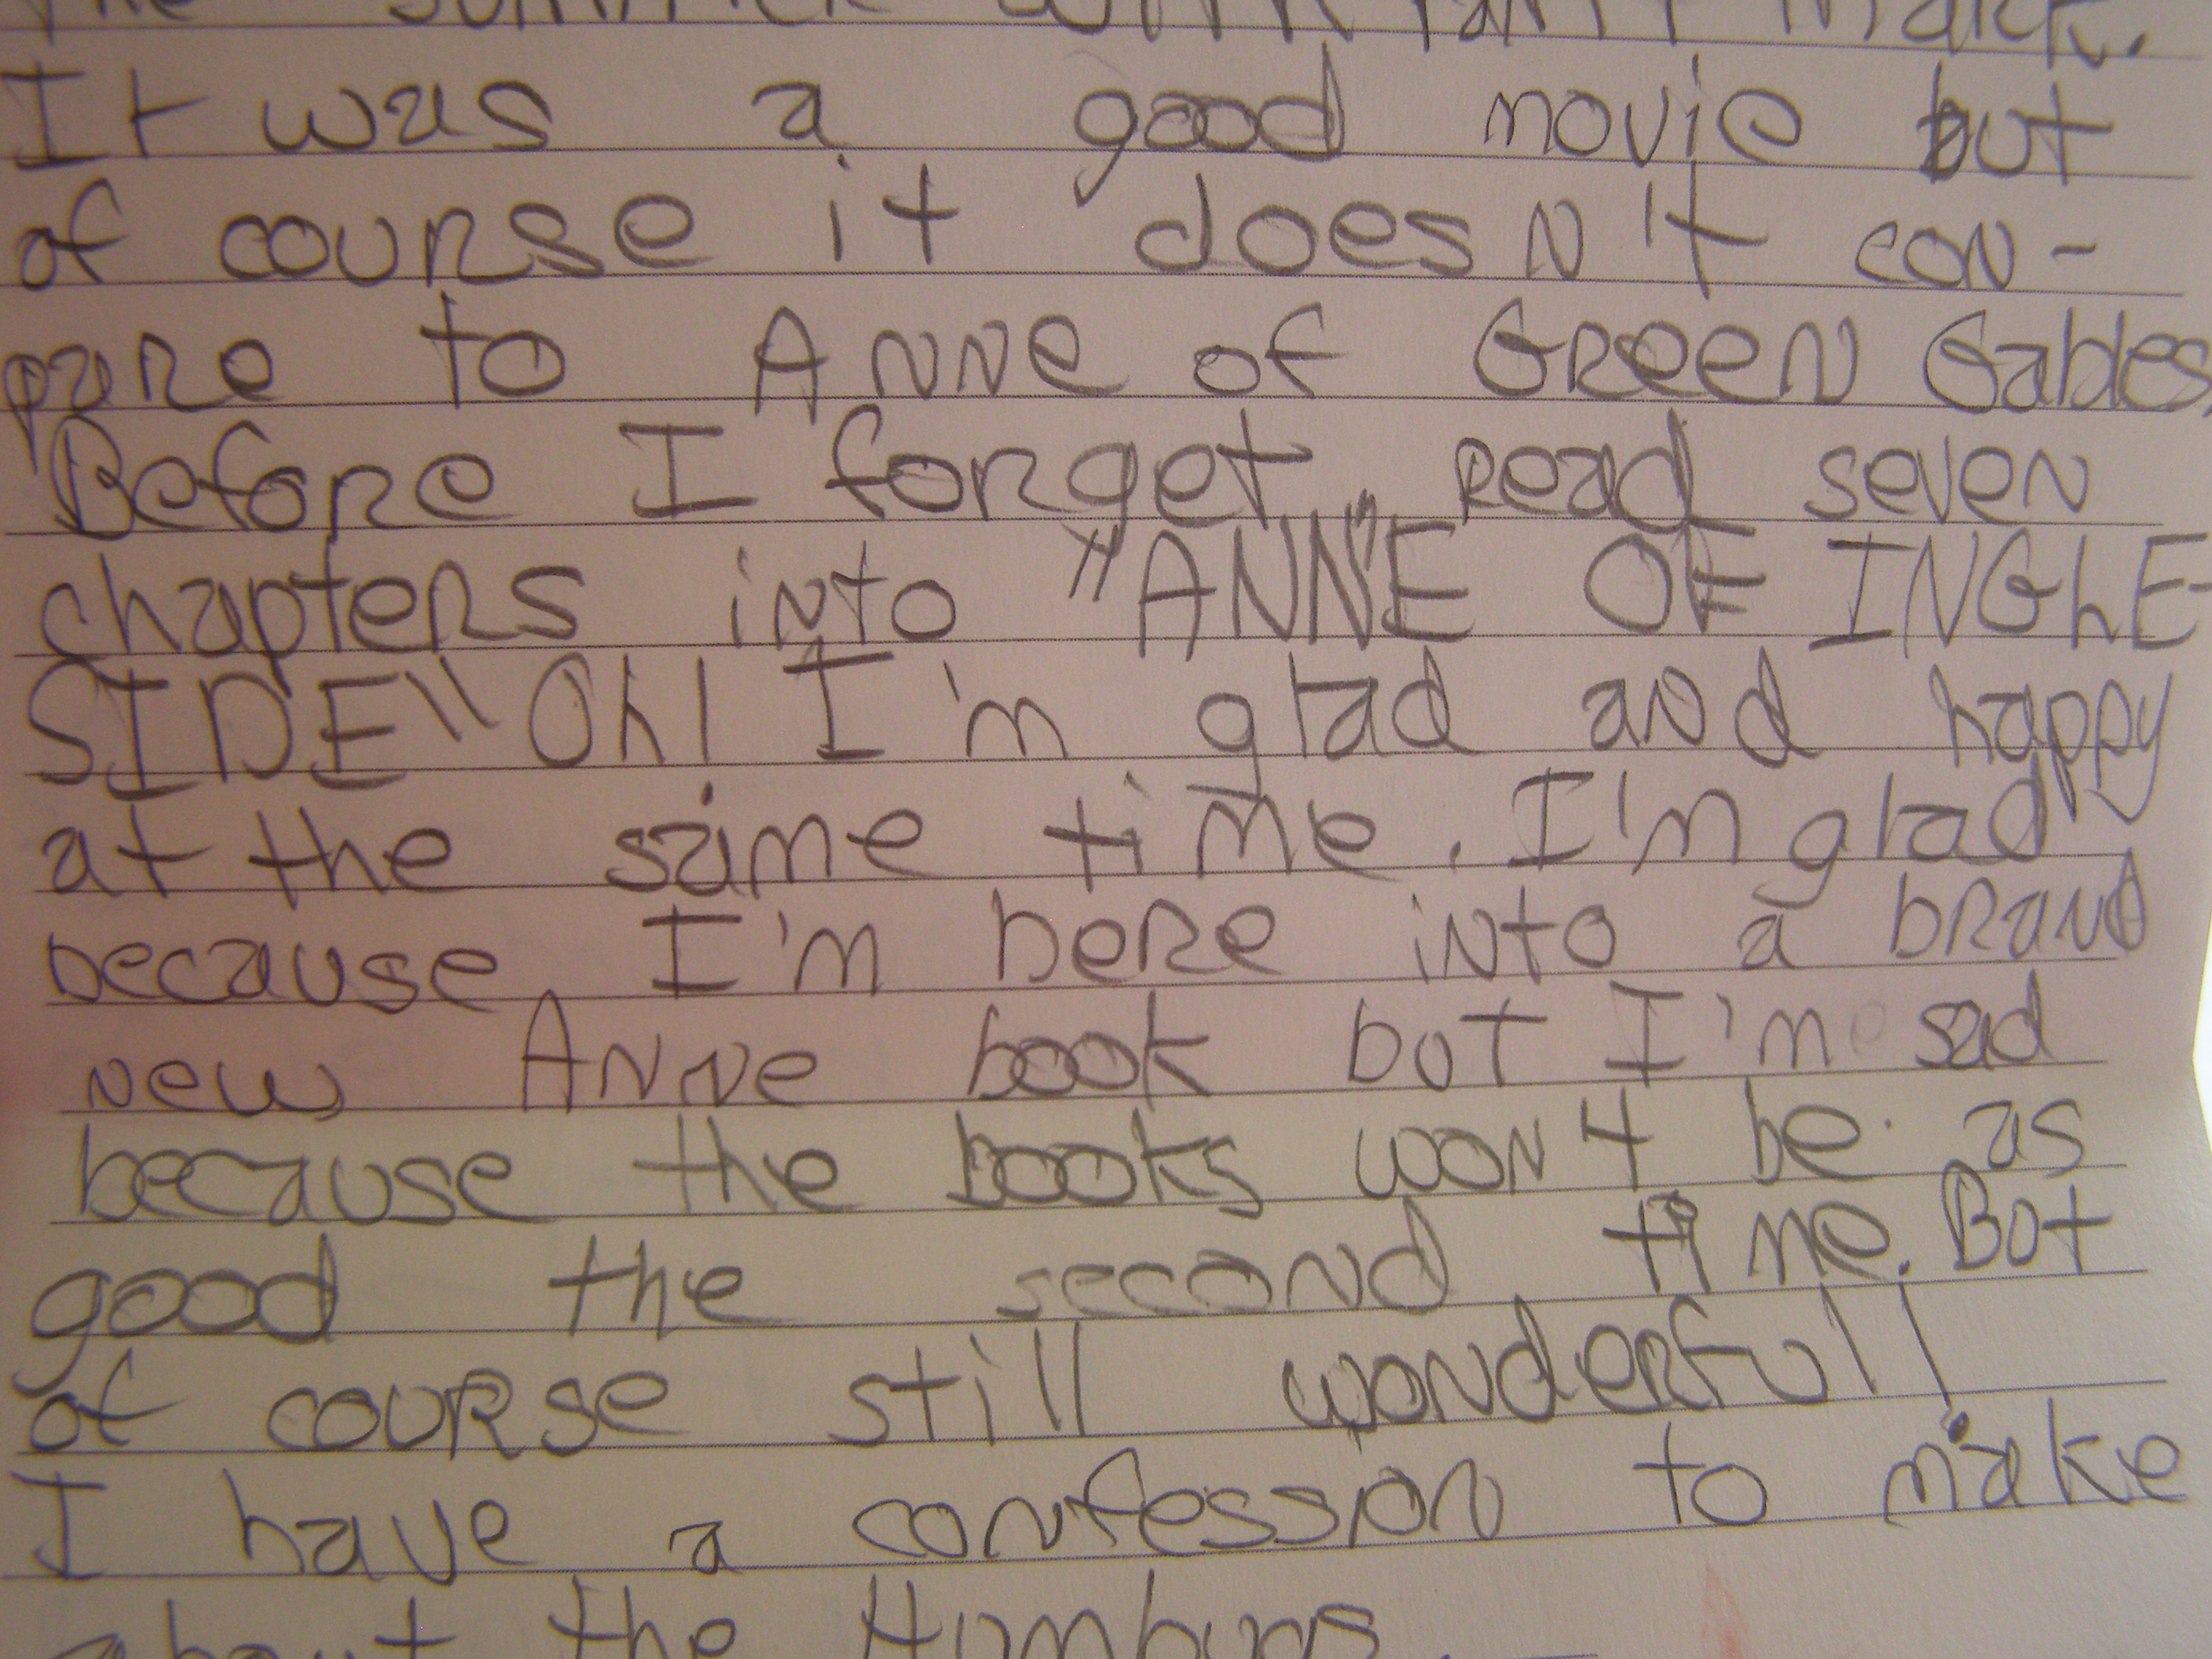 It was a good movie but
of course it doesn't con-
pare to Anne of Green Gables.
Before I forget, read seven
chapters into "ANNE OF INGLE-
SIDE" Oh! I'm glad and happy
at the same time. I'm glad
because I'm here into a brand
new Anne book but I'm sad
because the books won't be as
good the second time. But
of course still wonderful!
I have a confession to make
about the Humbugs.